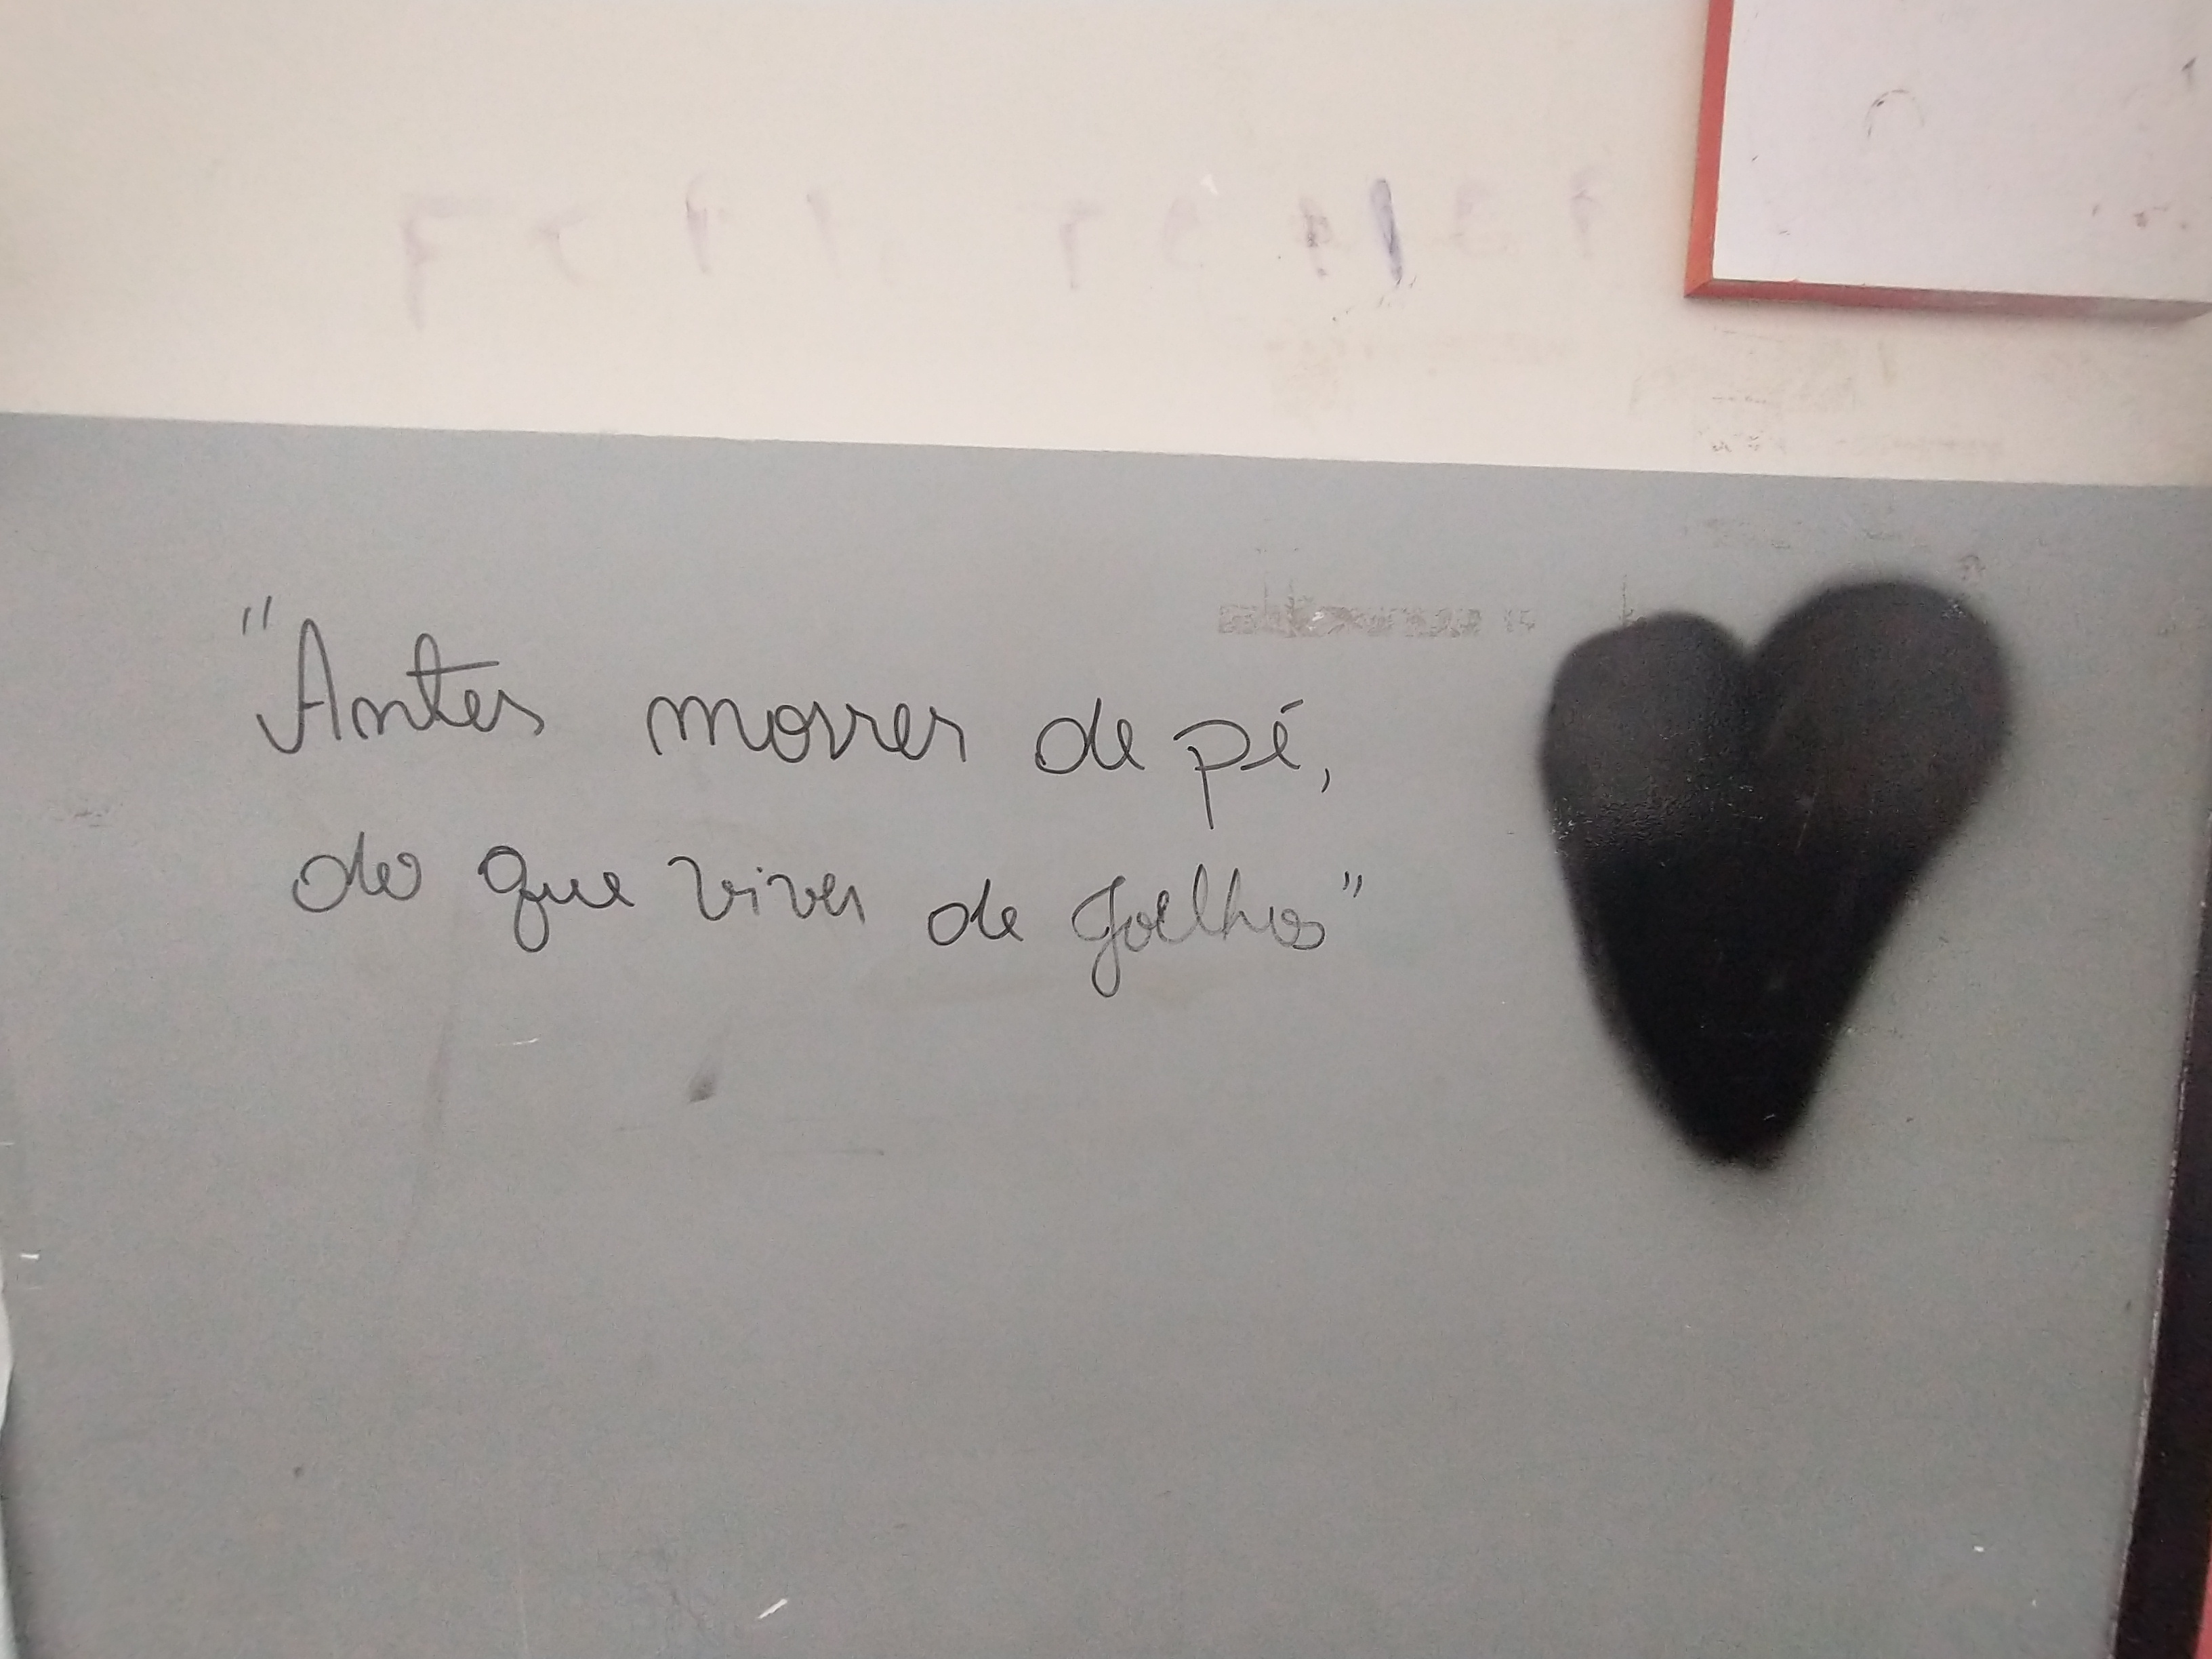 "Antes morrer de pé,
do que viver de joelhos"